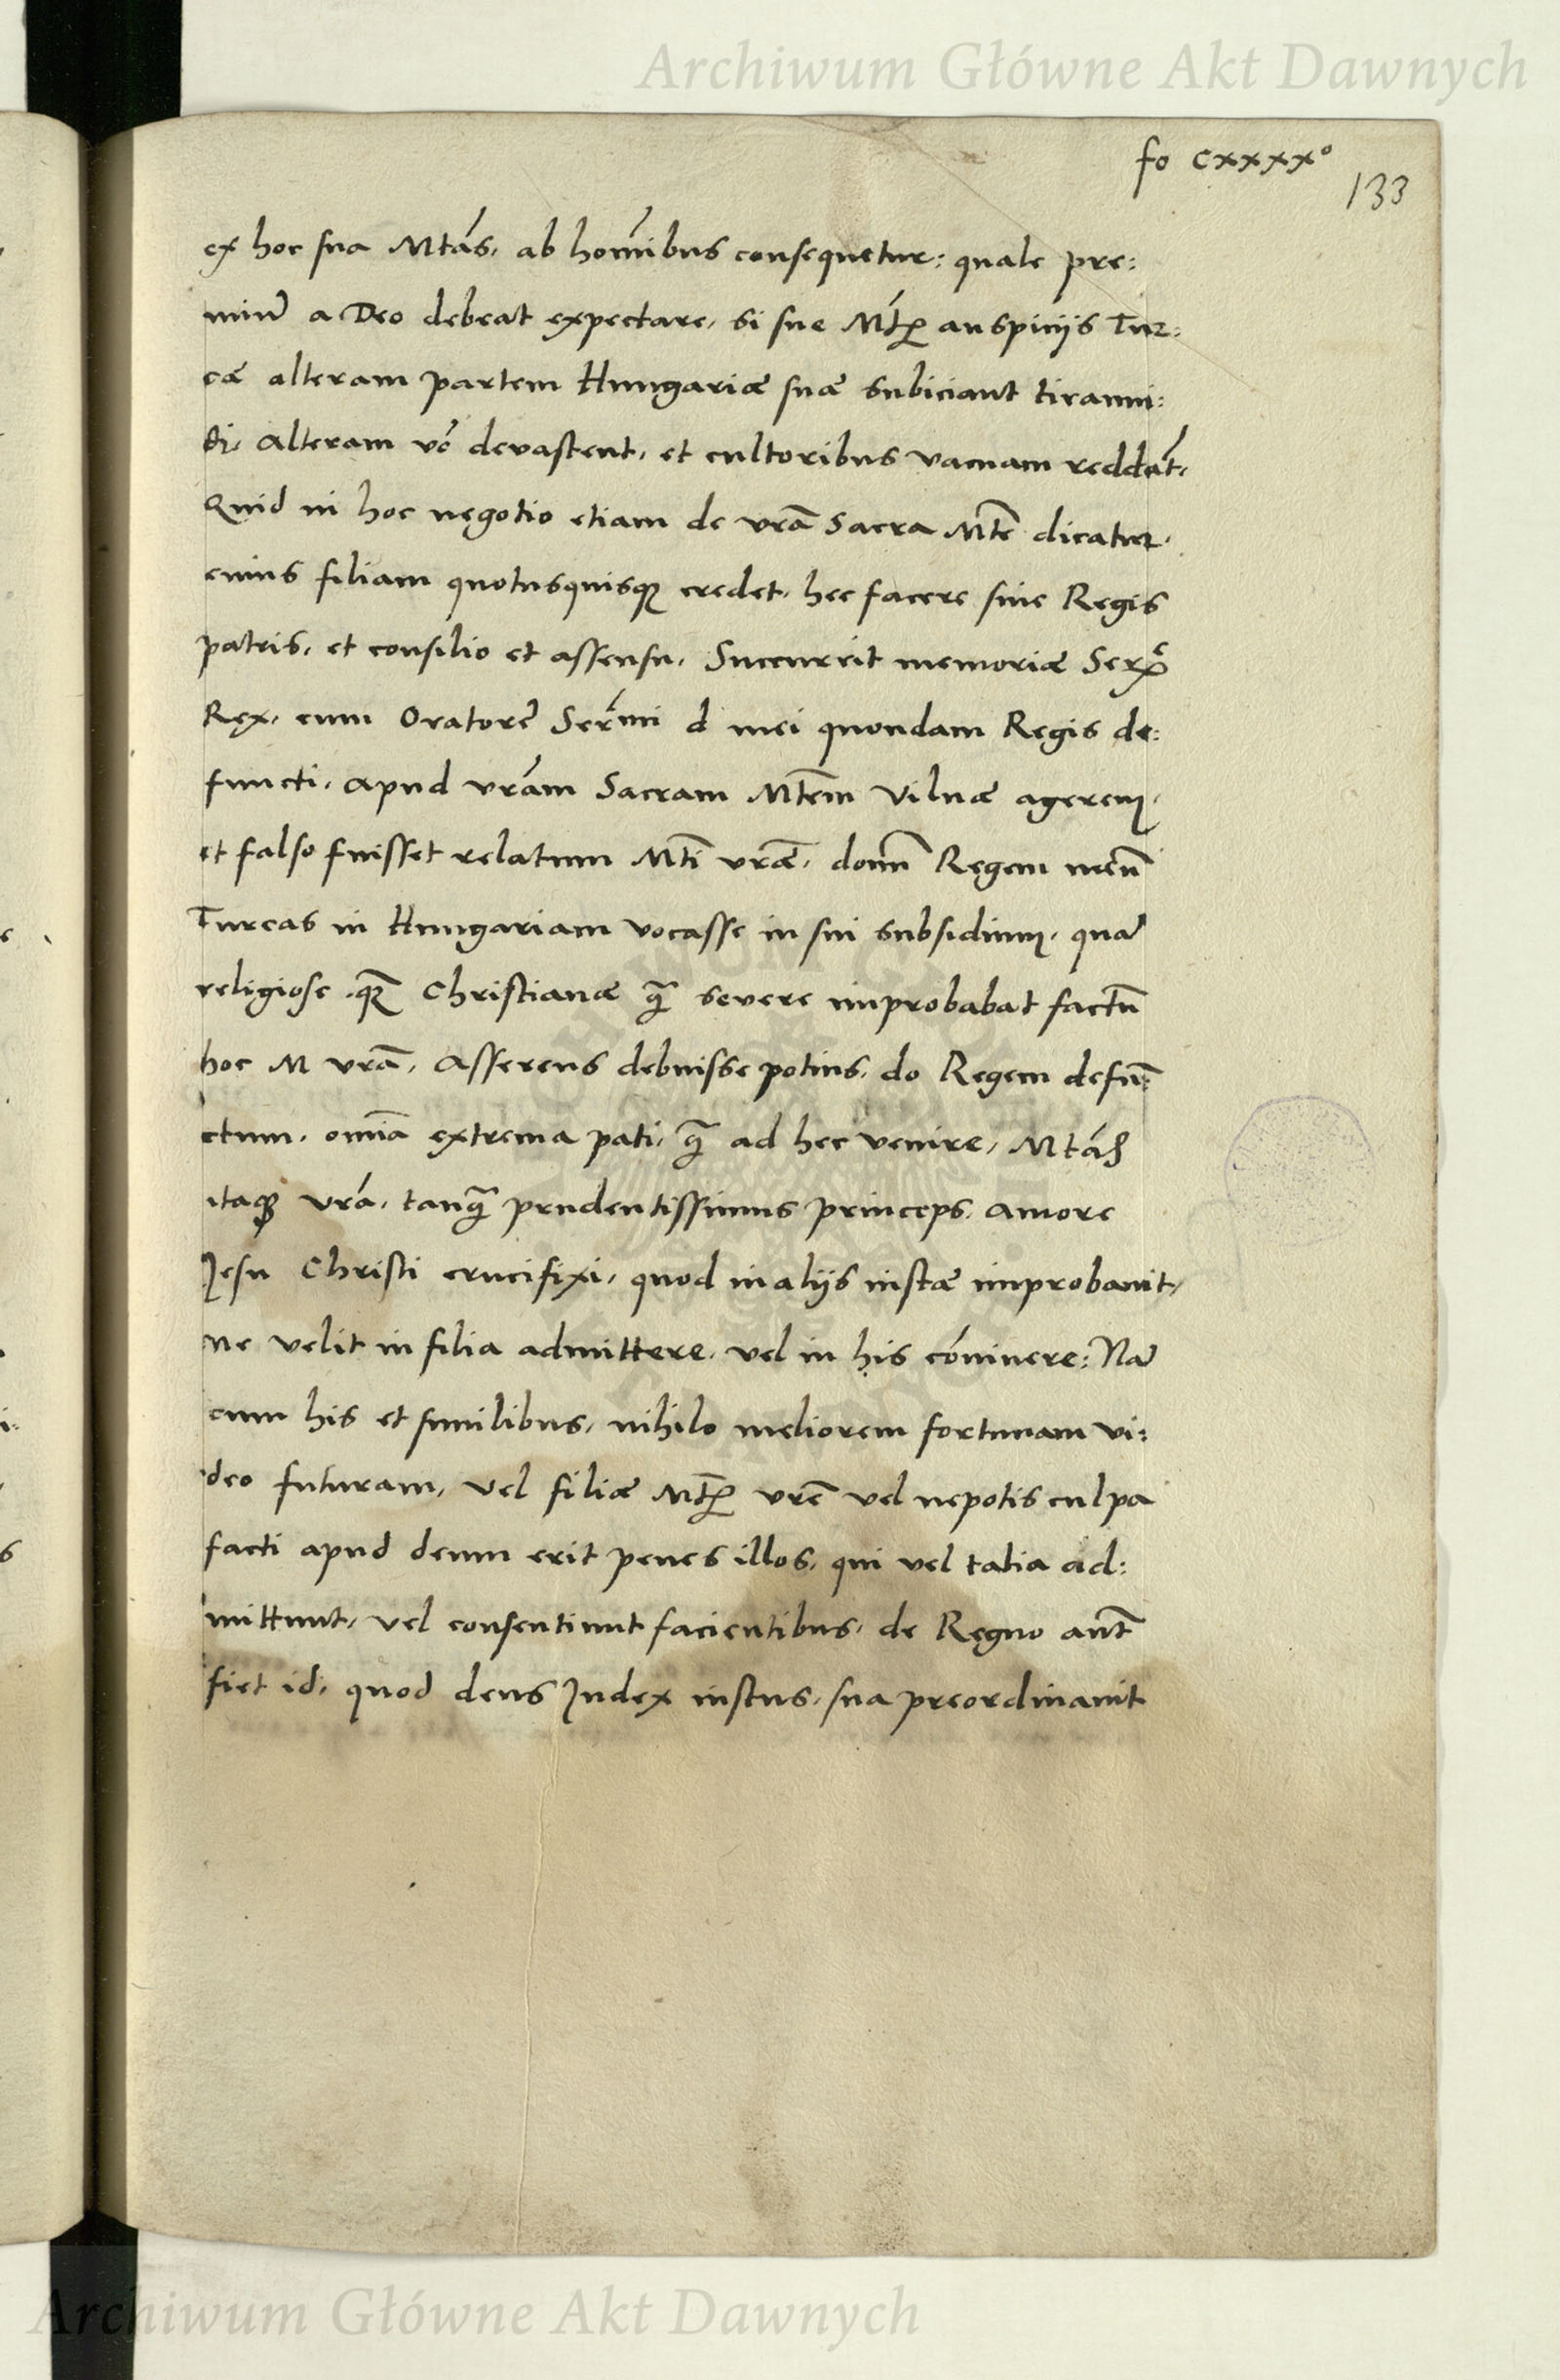 Archiwum Główne Akt Dawnych
fo cxxxx°
133
ex hoc sua Mtās, ab hoīnibus consequetur: quale pre:
miū a Deo debeat expectare, si sue Mtꝭ auspicijs Tur:
cæ alteram partem Hungariæ suæ subiciant tiranni:
di, alteram vō devastent, et cultoribus vacuam reddāt,
Quid in hoc negotio etiam de vrā Sacra Mte dicatur,
cuius filiam quotusquisqꝫ credet, hec facere sine Regis
patris, et consilio et assensu, Succurrit memoriæ Serᵐᵉ
Rex, cum Oratorē Serm̄i d mei quondam Regis de:
functi, apud vrām Sacram Mtēm Vilnæ agerem,
et falso fuisset relatum Mtī vræ, domī Regem meū
Turcas in Hungariam vocasse in sui subsidium, quā
religiose qꝫ Christianæ qā severe improbabat factū
hoc M vrā, Asserens debuisse potius, do Regem defū:
ctum, omīa extrema pati, qā ad hec venire, Mtās
itaqꝫ vrā, tanqā prudentissimus princeps, amore
Jesu Christi crucifixi, quod in alijs iustæ improbauit,
ne velit in filia admittere, vel in his cōnivere: Nā
cum his et similibus, nihilo meliorem fortunam vi:
deo futuram, vel filiæ Mtꝭ vrē vel nepotis culpa
facti apud deum erit penes illos, qui vel talia ad:
mittunt, vel consentiunt facientibus, de Regno aūt
fiet id, quod deus Judex iustus, sua preordinauit
Archiwum Główne Akt Dawnych